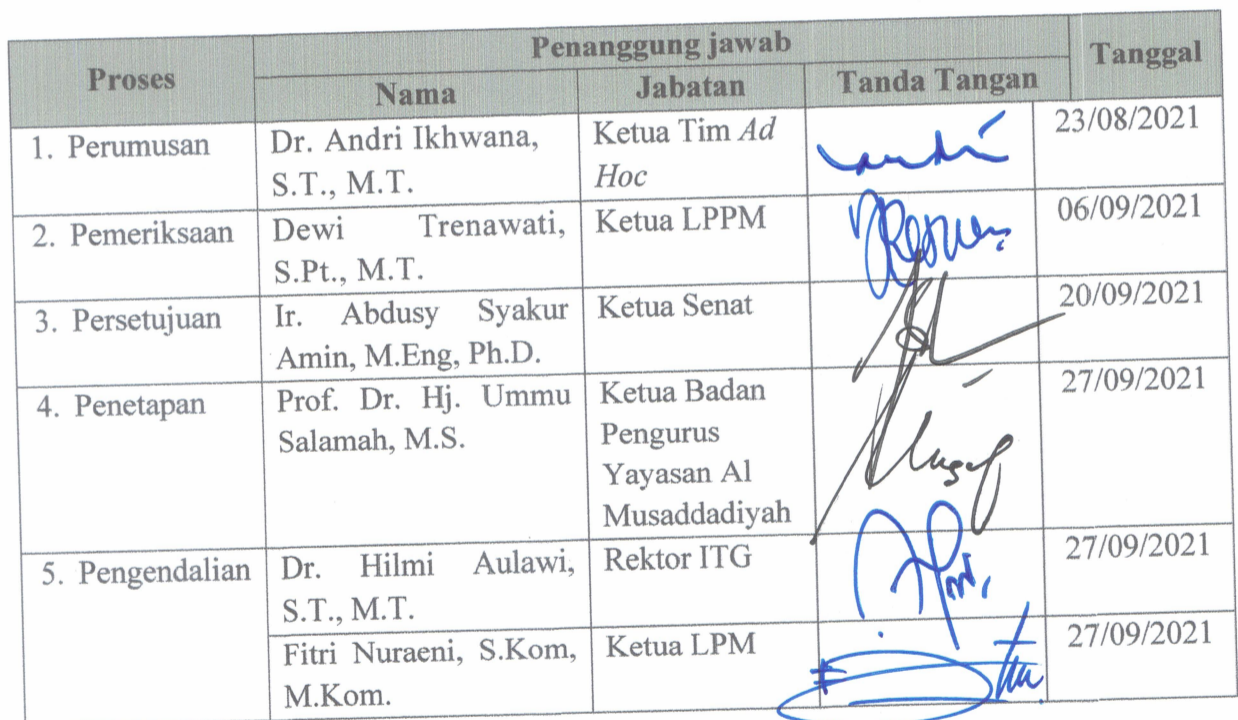 Proses
Penanggung jawab
Tanggal
Nama
Jabatan
Tanda Tangan
1. Perumusan
Dr. Andri Ikhwana,
S.T., M.T.
Ketua Tim Ad
Hoc
23/08/2021
2. Pemeriksaan
Dewi Trenawati,
S.Pt., M.T.
Ketua LPPM
06/09/2021
3. Persetujuan
Ir. Abdusy Syakur
Amin, M.Eng, Ph.D.
Ketua Senat
20/09/2021
4. Penetapan
Prof. Dr. Hj. Ummu
Salamah, M.S.
Ketua Badan
Pengurus
Yayasan Al
Musaddadiyah
27/09/2021
5. Pengendalian
Dr. Hilmi Aulawi,
S.T., M.T.
Rektor ITG
27/09/2021
Fitri Nuraeni, S.Kom,
M.Kom.
Ketua LPM
27/09/2021